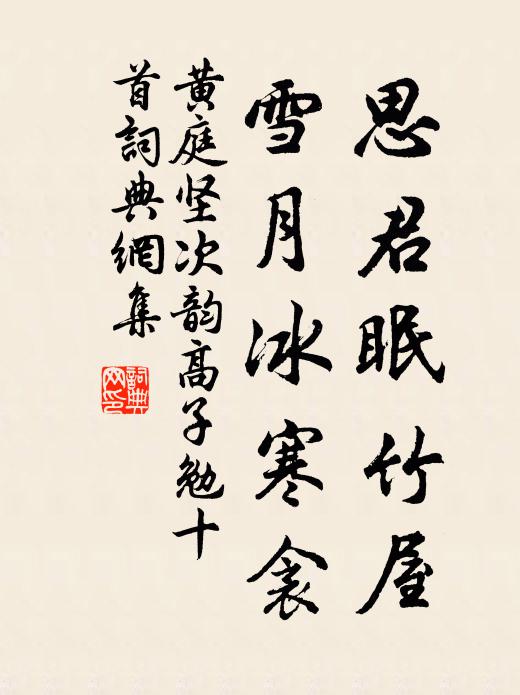 思君眠竹屋
雪月冰寒衾
黄庭坚次韵高子勉十
首词典網集
詞典網印